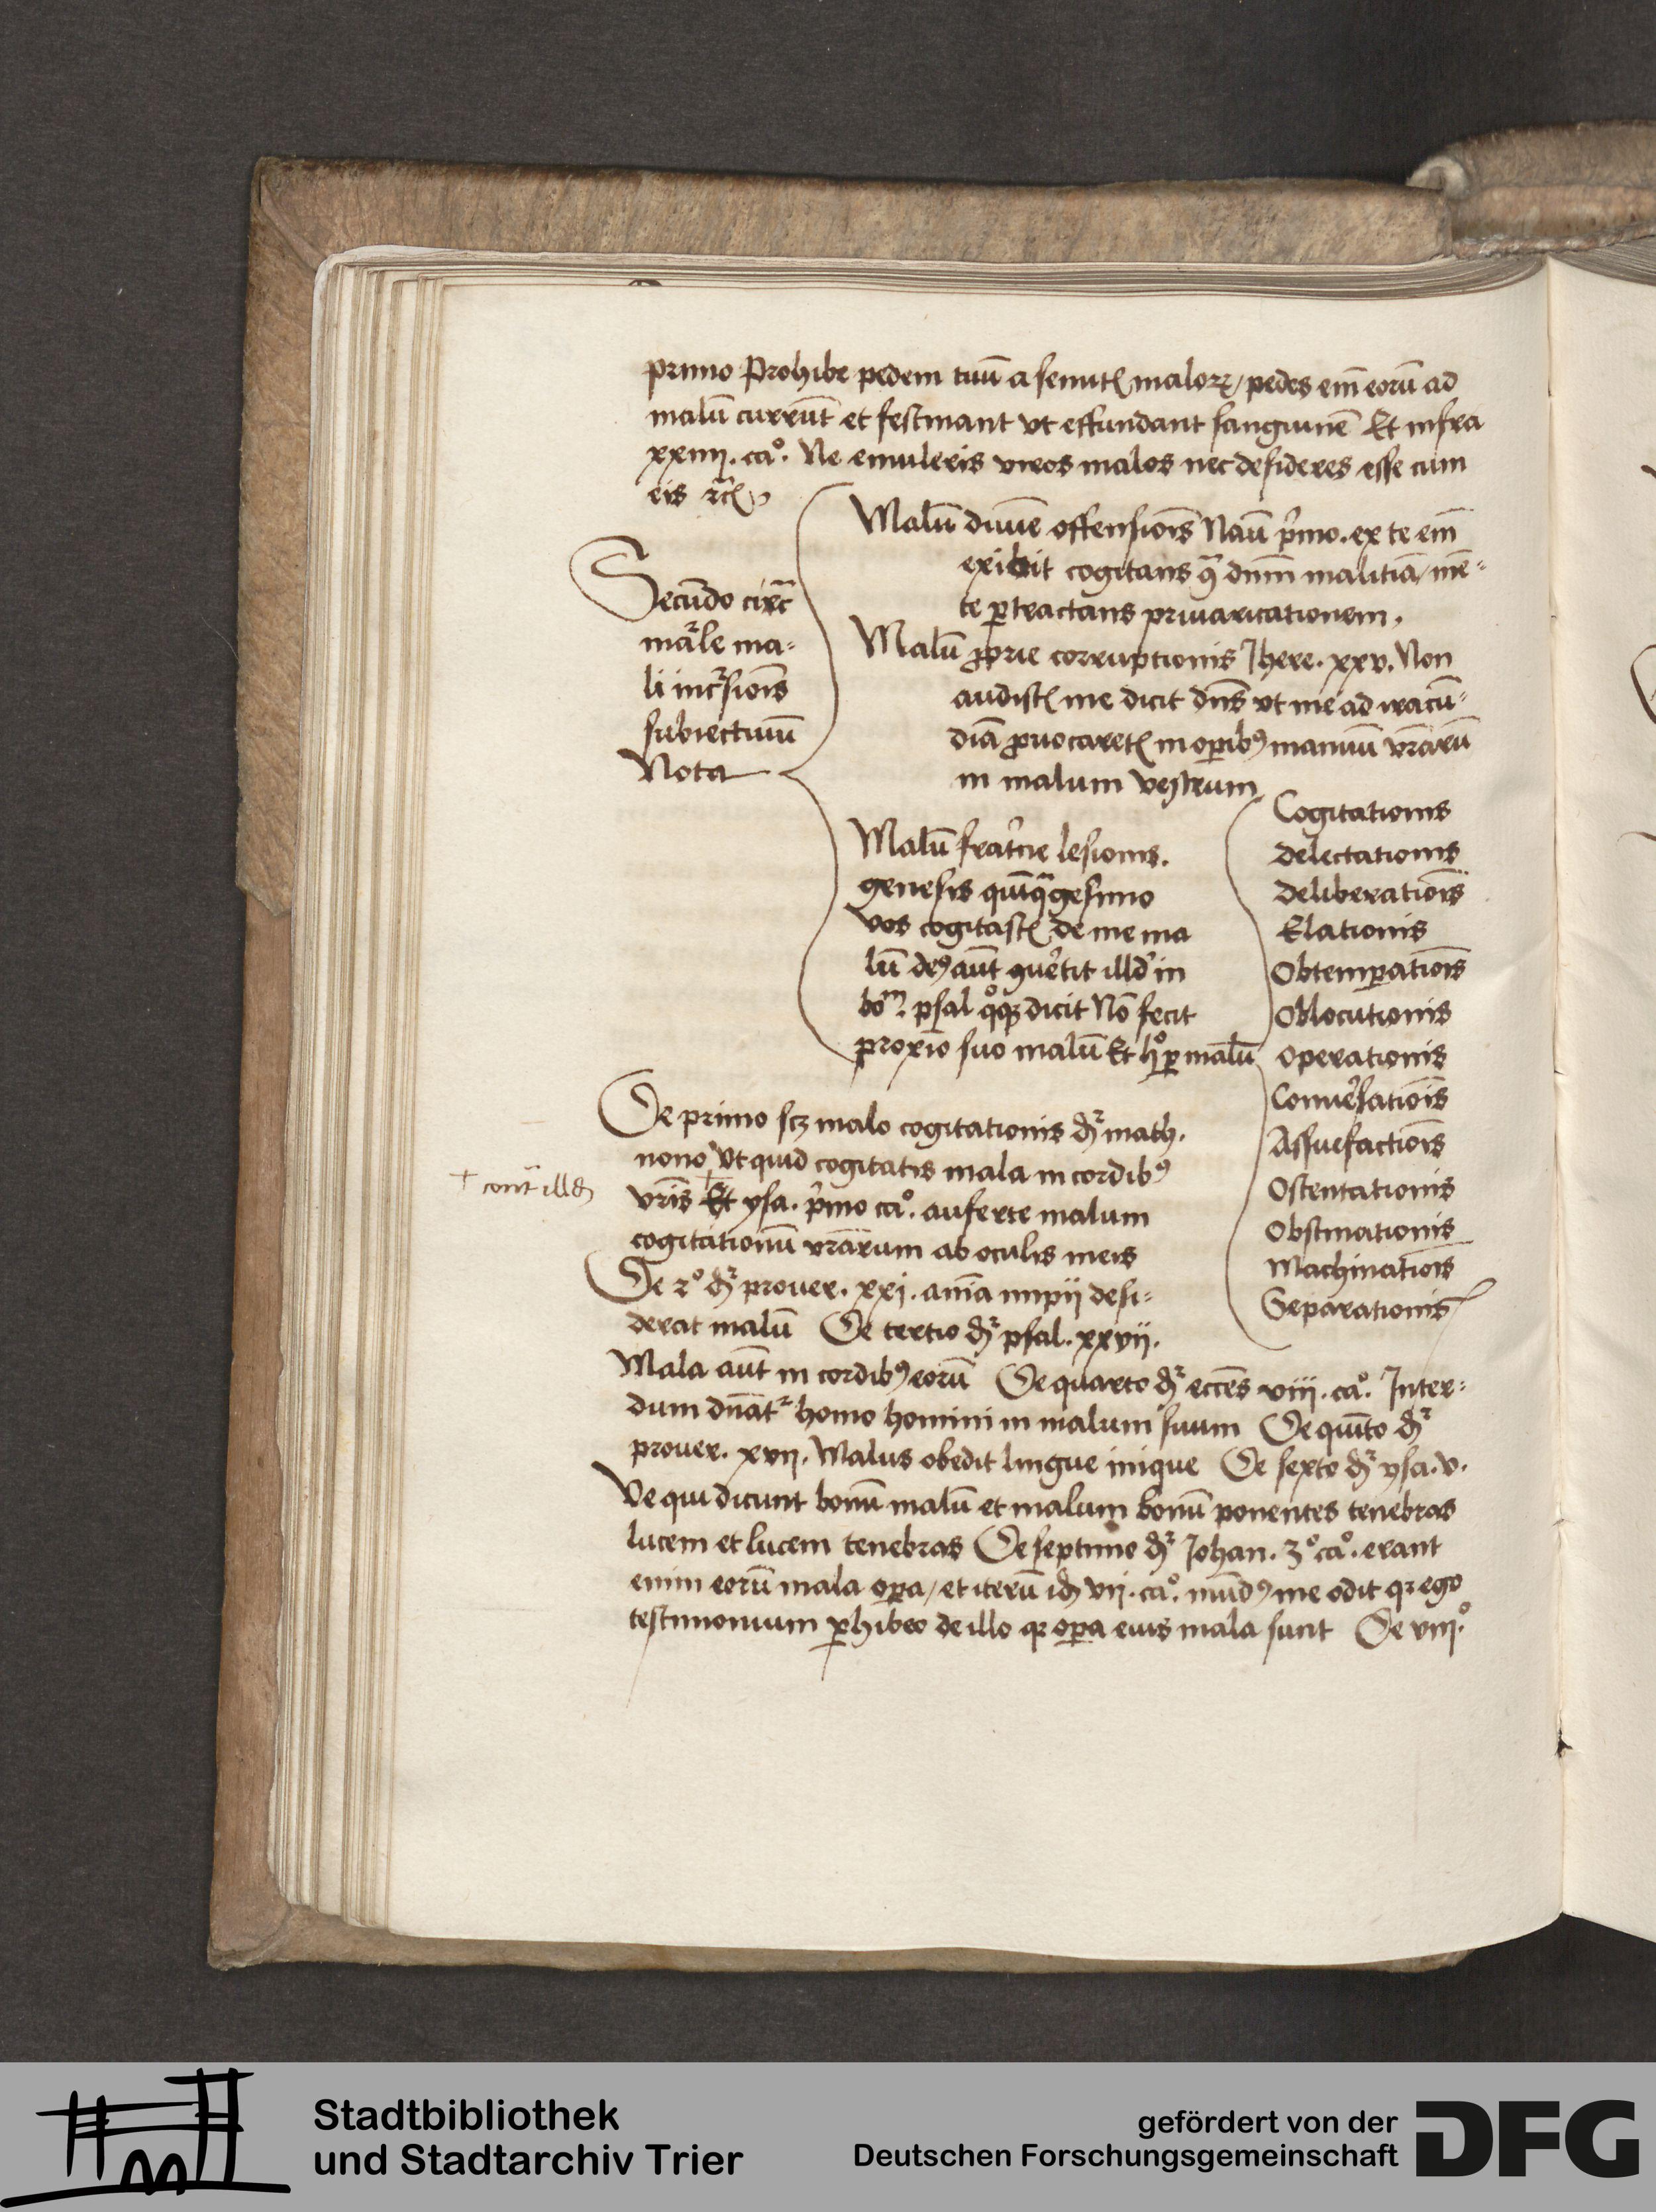 primo Prohibe pedem tuū a semitꝭ maloꝝ / pedes em̄ eorū ad
malū currūt et festinant vt effundant sanguinē Et infra
xxiiij. caº. Ne emuleris viros malos nec desideres esse cum
eis ꝛc̄
Secūdo circa
māle ma-
li inc̄sionis
subiectiuū
Nota
Malū diuine offensiōis Naū pͥmo. ex te em̄
exibit cogitans ꝯͣ dnm̄ malitiā / mē-
te ꝑtractans priuaricationem.
Malū ꝓprie corruptionis Jhere. xxv. Non
audistꝭ me dicit dn̄s vt me ad iracū-
diā ꝓuocaretꝭ in oꝑibꝰ manuū vr̄arū
in malum vestrum
Malū frat̄ne lesionis.
genesis quīqͣgesimo
vos cogitastꝭ de me ma
lū deꝰ aūt ꝯuētit illd' in
boᵐ. psal qͦqꝫ dicit Nō fecit
proxīo suo malū Et hͦ ꝑ malū
Cogitationis
delectationis
deliberatiōis
Elationis
Obtemꝑatiōis
Oblocutionis
operationis
Conuersatiōis
Assuefactiōis
Ostentationis
Obstinationis
Machinatiōis
Separationis
De primo scꝫ malo cogitationis dr̄ math.
nono vt quid cogitatis mala in cordibꝰ
+ cont̄ illd
vr̄is Et ysa. pͥmo caº. auferte malum
cogitationū vr̄arum ab oculis meis
De 2º dr̄ prouer. xxj. aīa impij desi-
derat malū De tertio dr̄ psal. xxvij.
Mala aūt in cordibꝰ eorū De quarto dr̄ eccēs viij. caº. Inter-
dum dn̄at² homo homini in malum suum De quīto dr̄
prouer. xvij. Malus obedit lingue inique De sexto dr̄ ysa. v.
Ve qui dicunt bonū malū et malum bonū ponentes tenebras
lucem et lucem tenebras De septimo dr̄ Johan. 3º caº. erant
enim eorū mala oꝑa / et iterū id vij. caº. mūdꝰ me odit qꝛ ego
testimonium ꝑhibeo de illo qꝛ oꝑa eius mala sunt De viijº
Stadtbibliothek
und Stadtarchiv Trier
gefördert von der
Deutschen Forschungsgemeinschaft
DFG